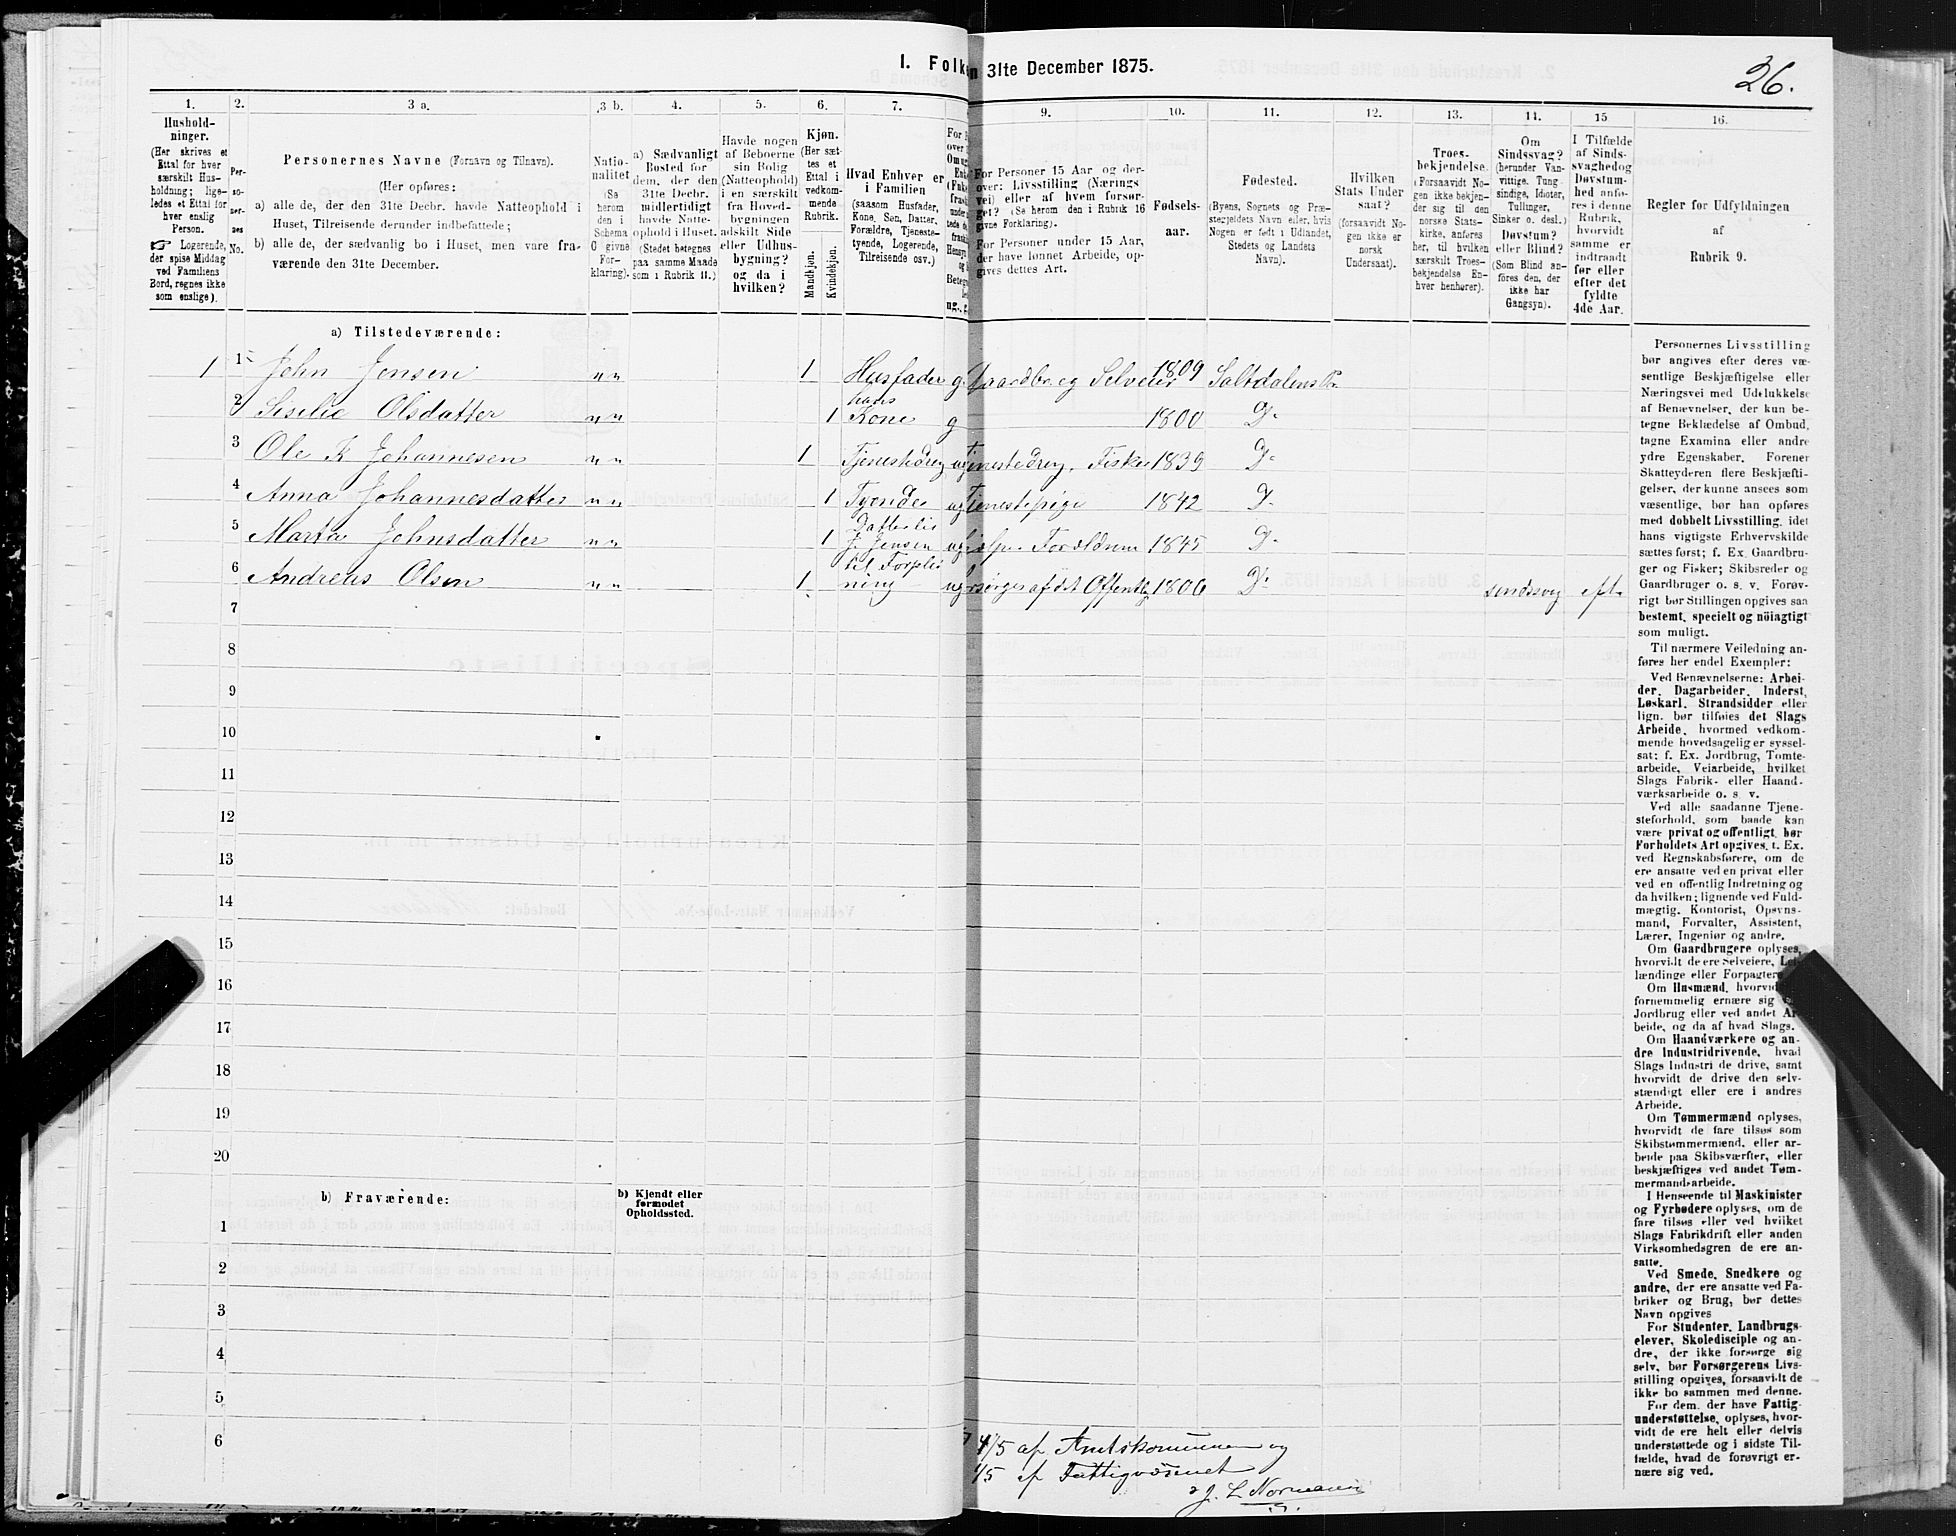 1. Folke
31te December 1875.
26.
1.
2.
3 a.
3 b.
4.
5.
6.
7.
9.
10.
11.
12.
13.
14.
15
16.
Hushold-
ninger.
(Her skrives et
Ettal for hver
særskilt Hus-
holdning; lige-
ledes et Ettal for
hver enslig
Person.
☞ Logerende,
der spise Middag
ved Familiens
Bord, regnes ikke
som enslige).
Per-
so-
ner-
nes
No.
Personernes Navne (Fornavn og Tilnavn).
(Her opføres:
a) alle de, der den 31te Decbr. havde Natteophold i
Huset, Tilreisende derunder indbefattede;
b) alle de, der sædvanlig bo i Huset, men vare fra-
værende den 31te December.
Natio-
nalitet
(Se
herom
den i
Schema
C givne
For-
klaring).
a) Sædvanligt
Bosted for
dem, der den
31te Decbr.
midlertidigt
havde Natte-
ophold i Huset.
(Stedet betegnes
paa samme Maade
som i Rubrik 11.)
Havde nogen
af Beboerne
sin Bolig
(Natteophold)
i en særskilt
fra Hoved-
bygningen
adskilt Side
eller Udhus-
bygning?
og da i
hvilken?
Kjøn.
(Her sæt-
tes et
Ettal i
vedkom-
mende
Rubrik.
Mandkjøn.
Kvindekjøn.
Hvad Enhver er
i Familien
(saasom Husfader,
Kone, Søn, Datter,
Forældre, Tjeneste-
tyende, Logerende,
Tilreisende osv.)
For Personer 15 Aar og der-
over: Livsstilling (Nærings
vei) eller af hvem forsør-
get? (Se herom den i Rubrik 16
givne Forklaring).
For Personer under 15 Aar,
der have lønnet Arbeide, op-
gives dettes Art.
Fødsels-
aar.
Fødested.
(Byens, Sognets og Præ-
stegjeldets Navn eller, hvis
Nogen er født i Udlandet,
Stedets og Landets
Navn).
Hvilken
Stats Under
saat?
(forsaavidt No-
gen ikke er
norsk
Undersaat).
Troes-
bekjendelse.
(Forsaavidt No-
gen ikke bekjen-
der sig til den
norske Stats-
kirke, anføres
her, til hvilken
særskilt Troes-
bekjendelse En-
hver henhører).
Om
Sindssvag?
(herunder Van-
vittige, Tung-
sindige, Idioter,
Tullinger,
Sinker o. desl.)
Døvstum?
eller Blind?
(Som Blind an-
føres den, der
ikke har
Gangsyn).
I Tilfælde
af Sinds-
svaghedog
Døvstum-
hed anfø-
res i denne
Rubrik,
hvorvidt
samme er
indtraadt
før eller
efter det
fyldte
4de Aar.
Regler for Udfyldningen
af
Rubrik 9.
a) Tilstedeværende:
1 1 John Jensen n n 1 Husfader g. Gaardbr. og Selveier 1809 Saltdalens Pr.
2 Siselie Olsdatter n n 1 hans Kone g 1800 D.
3 Ole K Johannesen n n 1 Tjenestedreng ug Tjenestedreng, Fisker 1839 D.
4 Anna Johannesdatter n n 1 Tyende ug Tjenestepige 1842 D.
5 Marta Johnsdatter n n 1 Datter til J. Jensen ug hjelper Forældrene 1845 D.
6 Andreas Olsen n n 1 til Forplejning ug forsørges af det Offentlig 1806 D. sindssvag eft.
7
8
9
10
11
12
13
14
15
16
17
18
19
20
b) Fraværende:
b) Kjendt eller
formodet
Opholdssted.
1
2
3
4
5
6
4/5 af Amtskommunen og
1/5 af Fattigvæsenet
J. L. Normann
Personernes Livsstilling
bør angives efter deres væ-
sentlige Beskjæftigelse eller
Næringsvei med Udelukkelse
af Benævnelser, der kun be-
tegne Beklædelse af Ombud,
tagne Examina eller andre
ydre Egenskaber. Forener
Skatteyderen flere Beskjæfti-
gelser, der kunne ansees som
væsentlige, bør han opføres
med dobbelt Livsstilling, idet
hans vigtigste Erhvervskilde
sættes først; f. Ex. Gaardbru-
ger og Fisker; Skibsreder og
Gaardbruger o. s. v. Forøv-
rigt bør Stillingen opgives saa
bestemt, specielt og nöiagtigt
som muligt.
Til nærmere Veiledning an-
føres her endel Exempler:
Ved Benævnelserne: Arbei-
der, Dagarbeider, Inderst,
Løskarl, Strandsidder eller
lign. bør tilføies det Slags
Arbeide, hvormed vedkom-
mende hovedsagelig er syssel-
sat; f. Ex. Jordbrug, Tomte-
arbeide, Veiarbeide, hvilket
Slags Fabrik- eller Haand-
værksarbeide o. s. v.
Ved alle saadanne Tjene-
steforhold, som baade kan
være privat og offentligt, bør
Forholdets Art opgives, t. Ex.
ved Regnskabsførere, om de
ere ansatte ved en privat eller
ved en offentlig Indretning og
da hvilken; lignende ved Fuld-
mægtig, Kontorist, Opsyns-
mand, Forvalter, Assistent,
Lærer, Ingeniør og andre.
Om Gaardbrugere oplyses,
hvorvidt de ere Selveiere, Lei-
lændinge eller Forpagtere
Om Husmænd, hvorvidt
fornemmelig ernære sig
Jordbrug eller ved andet Ar-
beide, og da af hvad Slags.
Om Haandværkere og an-
dre Industridrivende, hvad
Slags Industri de drive, samt
hvorvidt de drive den selv-
stændigt eller ere i andres
Arbeide.
Om Tømmermænd oplyses,
hvorvidt de fare tilsøs som
Skibstømmermænd, eller ar-
beide paa Skibsværfter, eller
beskjæftiges ved andet Tøm-
mermandsarbeide.
I Henseende til Maskinister
og Fyrbødere oplyses, om de
fare tilsøs eller ved hvilket
Slags Fabrikdrift eller anden
Virksomhedsgren de ere an-
satte.
Ved Smede, Snedkere og
andre, der ere ansatte ved Fa-
briker og Brug, bør dettes
Navn opgives
For Studenter, Landbrugs-
elever, Skoledisciple og an-
dre, der ikke forsørge sig
selv, bør Forsørgerens Livs-
stilling opgives, forsaavidt de
ikke bo sammen med denne.
For dem, der have Fattig-
understøttelse, oplyses, hvor-
vidt de ere helt eller delvis
understøttede og i sidste Til-
fælde, hvad de forøvrigt er-
nære sig ved.